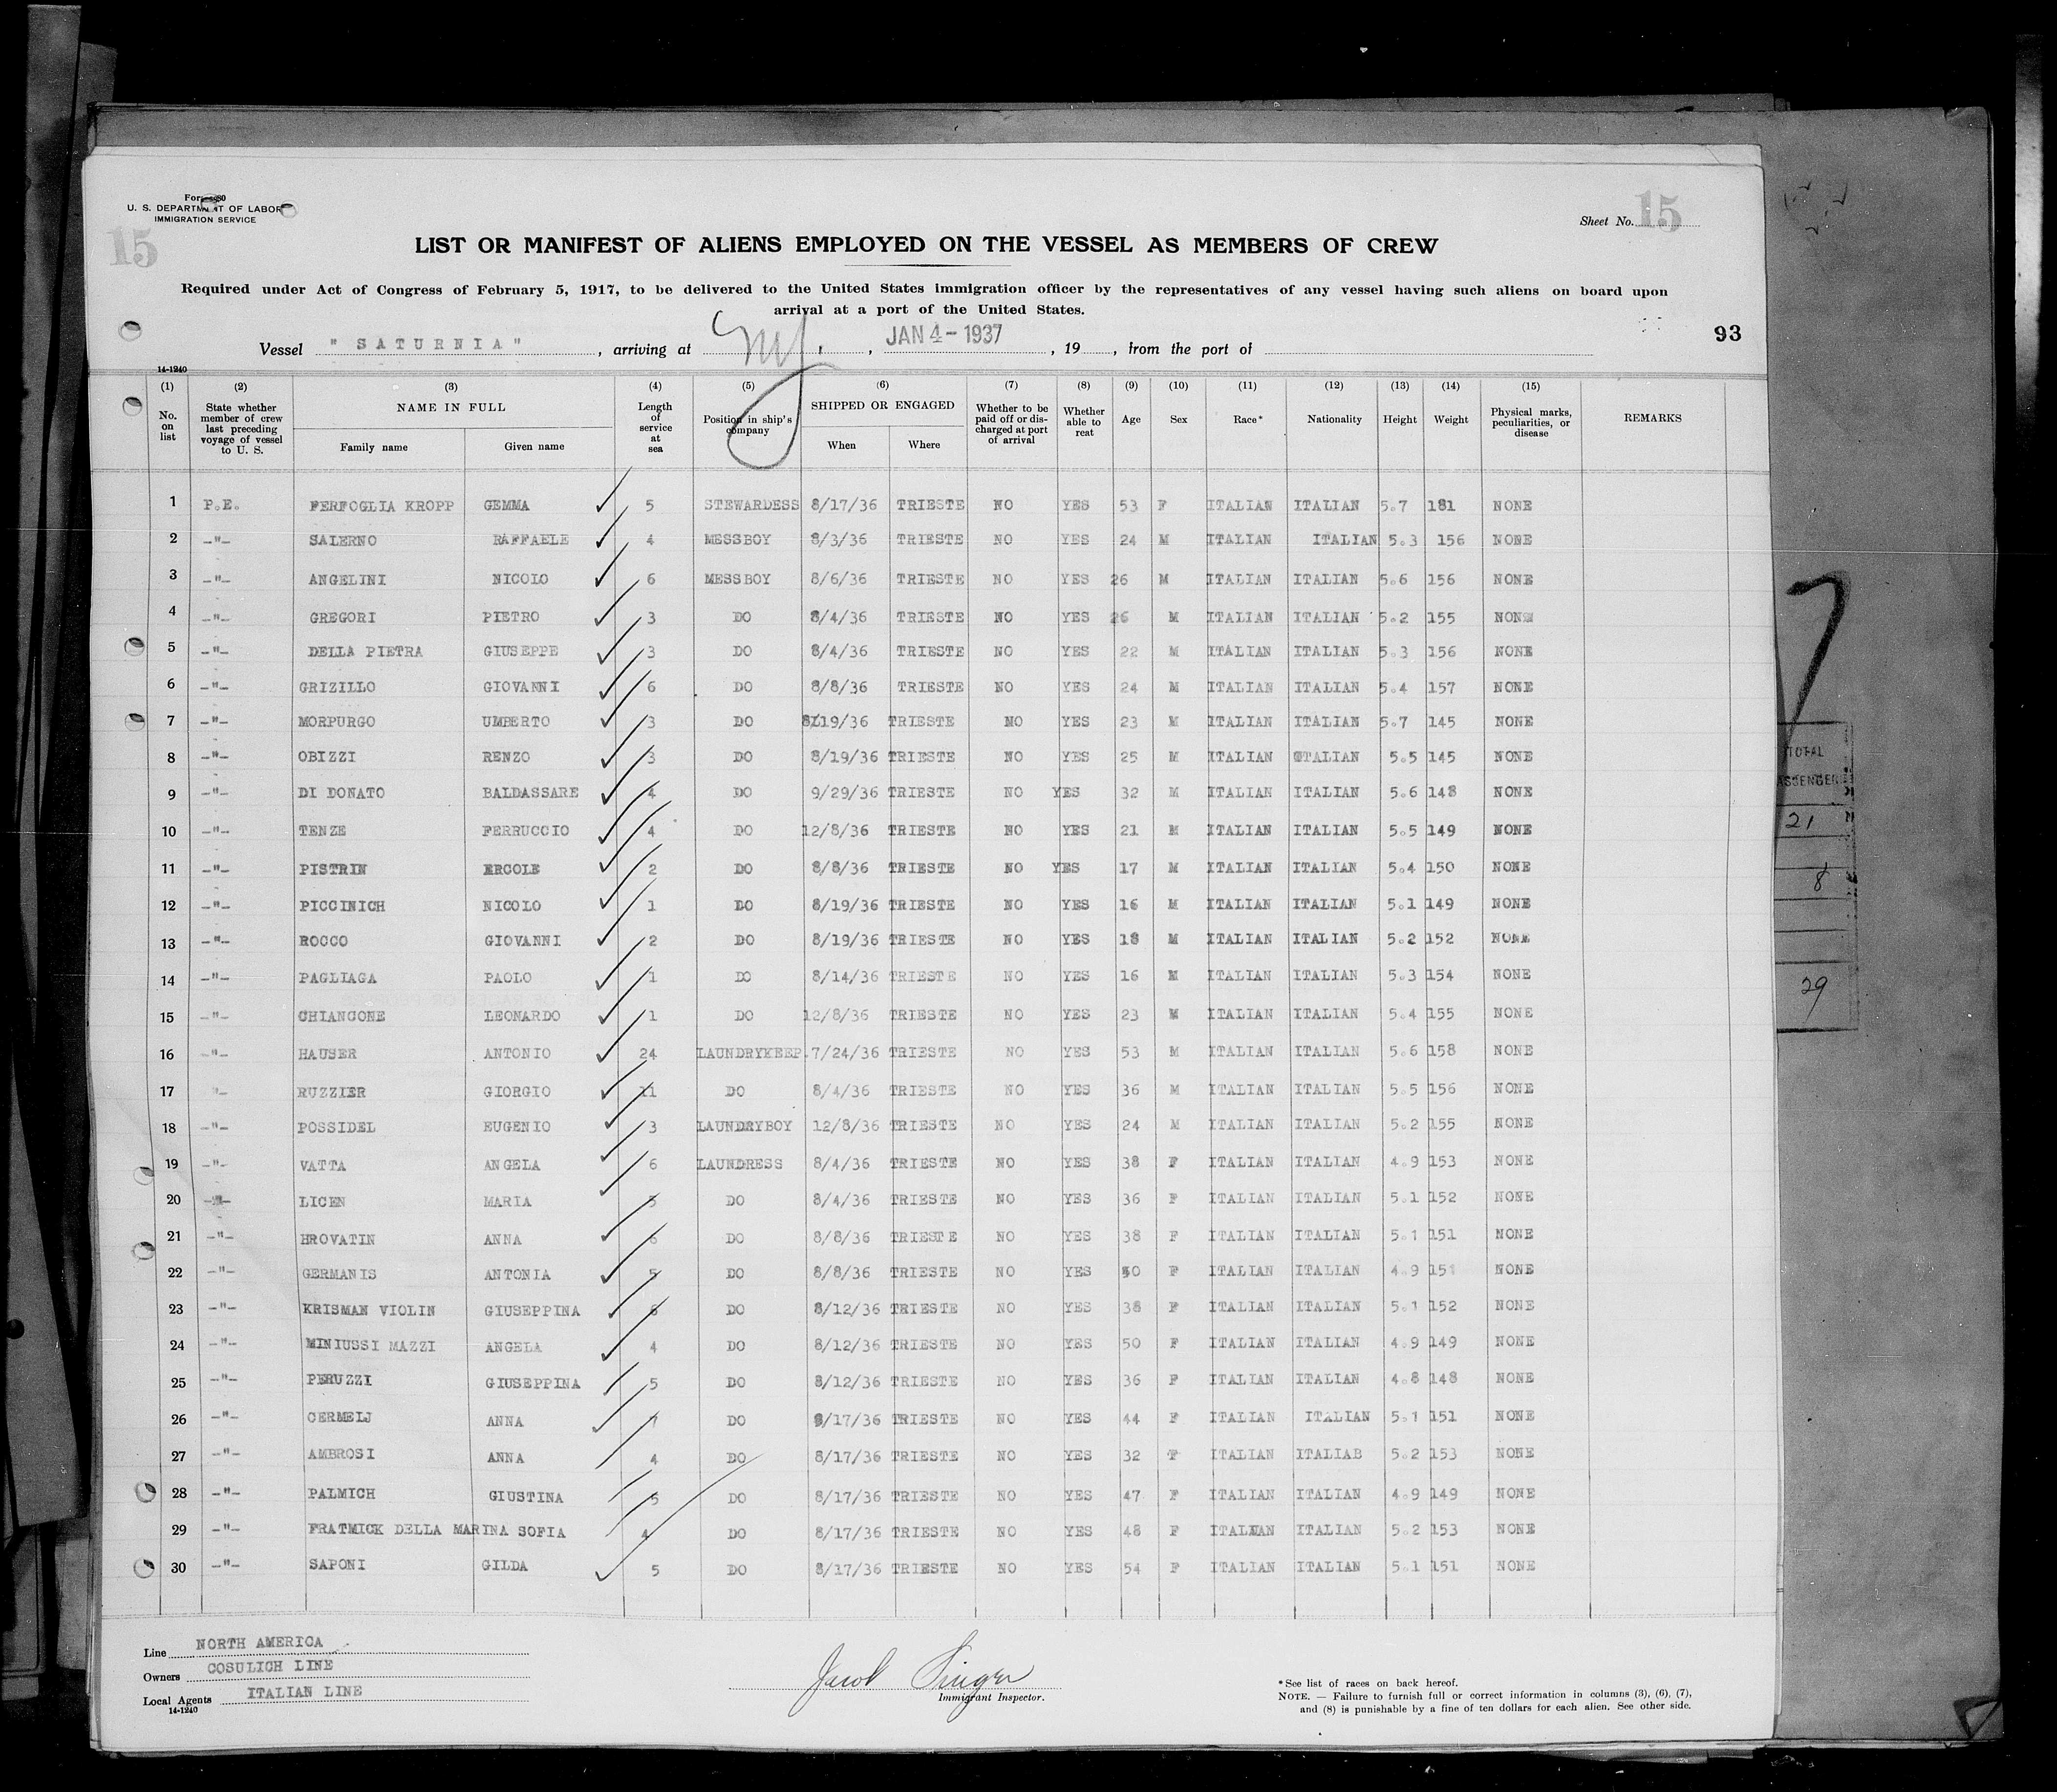 Form 680
U. S. DEPARTMENT OF LABOR
IMMIGRATION SERVICE
15
Sheet No. 15
LIST OR MANIFEST OF ALIENS EMPLOYED ON THE VESSEL AS MEMBERS OF CREW
Required under Act of Congress of February 5, 1917, to be delivered to the United States immigration officer by the representatives of any vessel having such aliens on board upon
arrival at a port of the United States.
93
Vessel " SATURNIA " , arriving at , JAN 4 - 1937 , 19 , from the port of
14-1240
(1) (2) (3) (4) (5) (6) (7) (8) (9) (10) (11) (12) (13) (14) (15)
No. on list State whether member of crew last preceding voyage of vessel to U. S. NAME IN FULL Family name Given name Length of service at sea Position in ship's company SHIPPED OR ENGAGED When Where Whether to be paid off or discharged at port of arrival Whether able to reat Age Sex Race* Nationality Height Weight Physical marks, peculiarities, or disease REMARKS
1 P.E. FERFOGLIA KROPP GEMMA 5 STEWARDESS 8/17/36 TRIESTE NO YES 53 F ITALIAN ITALIAN 5.7 181 NONE
2 -"- SALERNO RAFFAELE 4 MESSBOY 8/3/36 TRIESTE NO YES 24 M ITALIAN ITALIAN 5.3 156 NONE
3 -"- ANGELINI NICOLO 6 MESSBOY 8/6/36 TRIESTE NO YES 26 M ITALIAN ITALIAN 5.6 156 NONE
4 -"- GREGORI PIETRO 3 DO 8/4/36 TRIESTE NO YES 26 M ITALIAN ITALIAN 5.2 155 NONE
5 -"- DELLA PIETRA GIUSEPPE 3 DO 8/4/36 TRIESTE NO YES 22 M ITALIAN ITALIAN 5.3 156 NONE
6 -"- GRIZILLO GIOVANNI 6 DO 8/8/36 TRIESTE NO YES 24 M ITALIAN ITALIAN 5.4 157 NONE
7 -"- MORPURGO UMBERTO 3 DO 8/19/36 TRIESTE NO YES 23 M ITALIAN ITALIAN 5.7 145 NONE
8 -"- OBIZZI RENZO 3 DO 8/19/36 TRIESTE NO YES 25 M ITALIAN ITALIAN 5.5 145 NONE
9 -"- DI DONATO BALDASSARE 4 DO 9/29/36 TRIESTE NO YES 32 M ITALIAN ITALIAN 5.6 148 NONE
10 -"- TENZE FERRUCCIO 4 DO 12/8/36 TRIESTE NO YES 21 M ITALIAN ITALIAN 5.5 149 NONE
11 -"- PISTRIN ERCOLE 2 DO 8/8/36 TRIESTE NO YES 17 M ITALIAN ITALIAN 5.4 150 NONE
12 -"- PICCINICH NICOLO 1 DO 8/19/36 TRIESTE NO YES 16 M ITALIAN ITALIAN 5.1 149 NONE
13 -"- ROCCO GIOVANNI 2 DO 8/19/36 TRIESTE NO YES 18 M ITALIAN ITALIAN 5.2 152 NONE
14 -"- PAGLIAGA PAOLO 1 DO 8/14/36 TRIESTE NO YES 16 M ITALIAN ITALIAN 5.3 154 NONE
15 -"- CHIANCONE LEONARDO 1 DO 12/8/36 TRIESTE NO YES 23 M ITALIAN ITALIAN 5.4 155 NONE
16 -"- HAUSER ANTONIO 24 LAUNDRYKEEP. 7/24/36 TRIESTE NO YES 53 M ITALIAN ITALIAN 5.6 158 NONE
17 "- RUZZIER GIORGIO 11 DO 8/4/36 TRIESTE NO YES 36 M ITALIAN ITALIAN 5.5 156 NONE
18 -"- POSSIDEL EUGENIO 3 LAUNDRYBOY 12/8/36 TRIESTE NO YES 24 M ITALIAN ITALIAN 5.2 155 NONE
19 -"- VATTA ANGELA 6 LAUNDRESS 8/4/36 TRIESTE NO YES 38 F ITALIAN ITALIAN 4.9 153 NONE
20 -"- LICEN MARIA 5 DO 8/4/36 TRIESTE NO YES 36 F ITALIAN ITALIAN 5.1 152 NONE
21 -"- HROVATIN ANNA 6 DO 8/8/36 TRIESTE NO YES 38 F ITALIAN ITALIAN 5.1 151 NONE
22 -"- GERMANIS ANTONIA 5 DO 8/8/36 TRIESTE NO YES 50 F ITALIAN ITALIAN 4.9 151 NONE
23 -"- KRISMAN VIOLIN GIUSEPPINA 6 DO 8/12/36 TRIESTE NO YES 38 F ITALIAN ITALIAN 5.1 152 NONE
24 -"- MINIUSSI MAZZI ANGELA 4 DO 8/12/36 TRIESTE NO YES 50 F ITALIAN ITALIAN 4.9 149 NONE
25 -"- PERUZZI GIUSEPPINA 5 DO 8/12/36 TRIESTE NO YES 36 F ITALIAN ITALIAN 4.8 148 NONE
26 -"- CERMELJ ANNA 7 DO 8/17/36 TRIESTE NO YES 44 F ITALIAN ITALIAN 5.1 151 NONE
27 -"- AMBROSI ANNA 4 DO 8/17/36 TRIESTE NO YES 32 F ITALIAN ITALIAB 5.2 153 NONE
28 -"- PALMICH GIUSTINA 5 DO 8/17/36 TRIESTE NO YES 47 F ITALIAN ITALIAN 4.9 149 NONE
29 -"- FRATMICK DELLA MARINA SOFIA 4 DO 8/17/36 TRIESTE NO YES 48 F ITALIAN ITALIAN 5.2 153 NONE
30 -"- SAPONI GILDA 5 DO 8/17/36 TRIESTE NO YES 54 F ITALIAN ITALIAN 5.1 151 NONE
TOTAL
PASSENGER
21
8
29
Line NORTH AMERICA
Owners COSULICH LINE
Local Agents ITALIAN LINE
14-1240
Jacob Singer
Immigrant Inspector.
*See list of races on back hereof.
NOTE. — Failure to furnish full or correct information in columns (3), (6), (7),
and (8) is punishable by a fine of ten dollars for each alien. See other side.